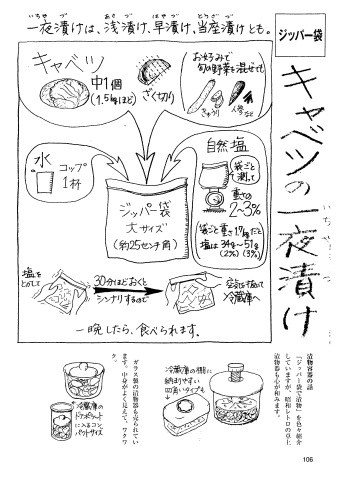 ジッパー袋
キャベツの一夜漬け
いちやづ
いちやづ あさづ はやづ とうざづ
一夜漬けは、浅漬け、早漬け、当座漬けとも。
キャベツ
中1個
(1.5kgほど)
ざく切り
お好みで
旬の野菜を混ぜても
きゅうり
人参など
水
コップ
1杯
自然塩
袋ごと
測って
重さの
2~3%
袋ごと重さ1.7kgだと
塩は34g~51g
(2%) (3%)
ジッパー袋
大サイズ
(約25センチ角)
塩を
とかして
30分ほどおくと
シンナリするので
空気を抜いて
冷蔵庫へ
一晩したら、食べられます。
漬物容器の話
「ジッパー袋で漬物」を色々紹介
していますが、昭和レトロの卓上
漬物器も心が和みます。
冷蔵庫の棚に
納まりやすい
四角いタイプも
ガラス製の漬物器も売られてい
ます。中身がよく見えて、ワクワ
ク。
冷蔵庫の
ドアポケット
に入るコン
パクトサイズ
106